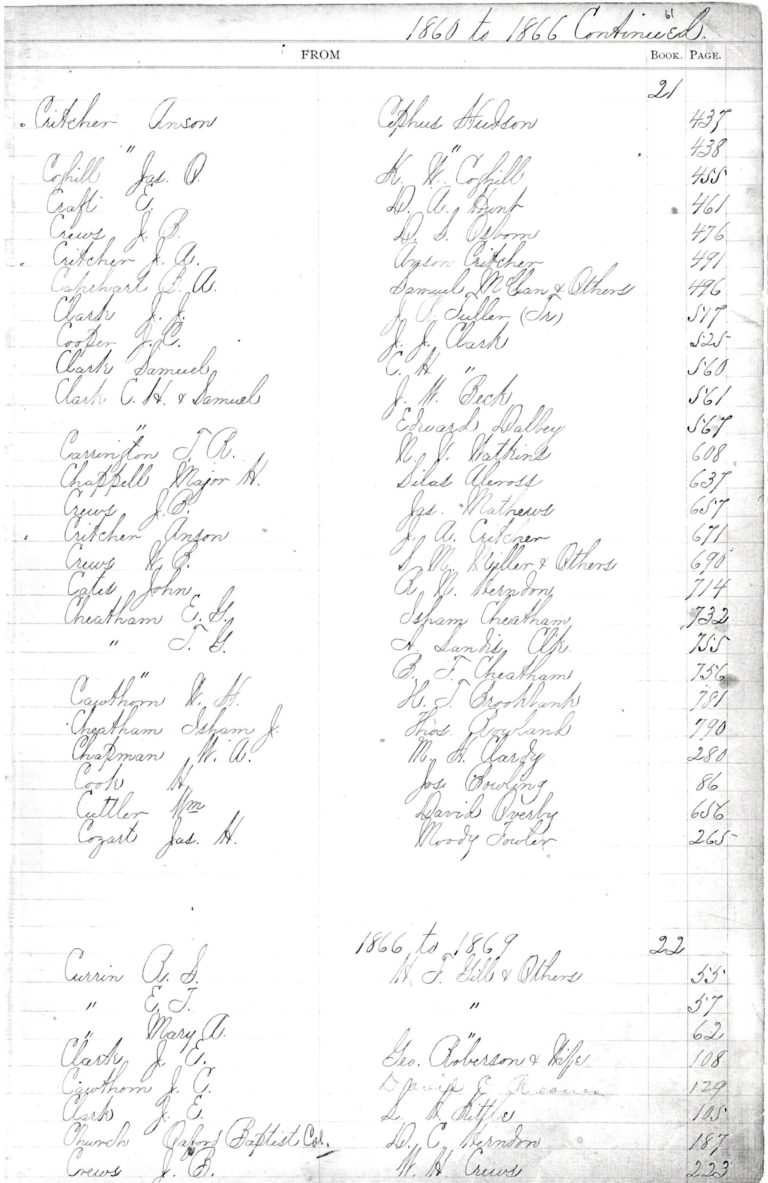 61
1860 to 1866 Continued.
FROM BOOK. PAGE.
21
Critcher Anson Cephus Hudson 437
" " 438
Coghill Jas. O. K. W. Coghill 455
Craft E. D. A. Hunt 461
Crews J. B. D. S. Osborn 476
Critcher J. A. Anson Critcher 491
Capehart B. A. Samuel McClan & Others 496
Clark J. J. J. Fuller (Tr) 517
Cooper J. C. J. J. Clark 525
Clark Samuel C. H. " 560
Clark C. H. & Samuel J. W. Beck 561
" Edward Dalbey 567
Carrington T. R. Watkins 608
Chappell Major H. Silas 637
Crews J. B. Jas. Mathews 657
Critcher Anson J. A. Critcher 671
Crews W. B. S. M. Miller & Others 690
Cates John R. N. Herndon 714
Cheatham E. G. Isham Cheatham 732
" T. G. A. Landis Clk. 755
" B. F. Cheatham 756
Cawthorn W. H. H. T. Brookbank 781
Cheatham Isham J. Thos. 790
Chapman W. A. M. H. Clardy 280
Cook H. Jos. Bowling 86
Cuttler Wm David Overby 656
Cozart Jas. H. Moody Fowler 265
1866 to 1869 22
Currin R. S. H. T. Gill & Others 55
" E. T. " 57
" Mary A. " 62
Clark J. E. Geo. Roberson & Wife 108
Cawthorn J. C. 129
Clark J. E. Kittle 105
Church Oxford Baptist Col. D. C. Herndon 187
Crews J. B. W. H. Crews 223